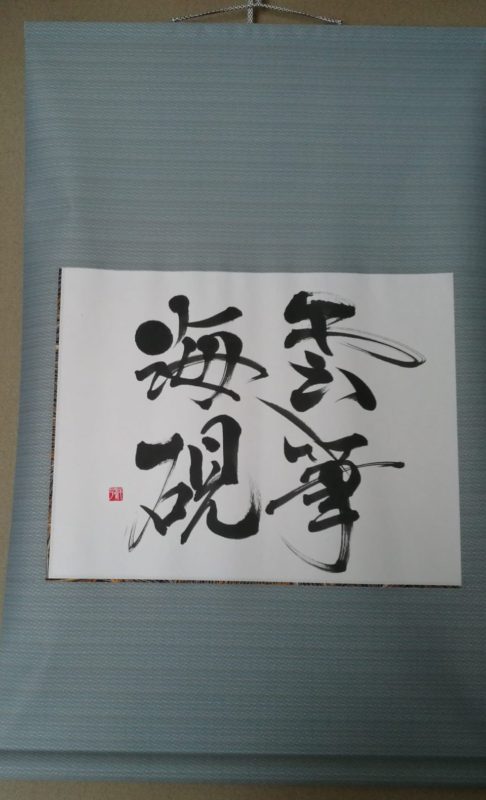 雲筆
海硯